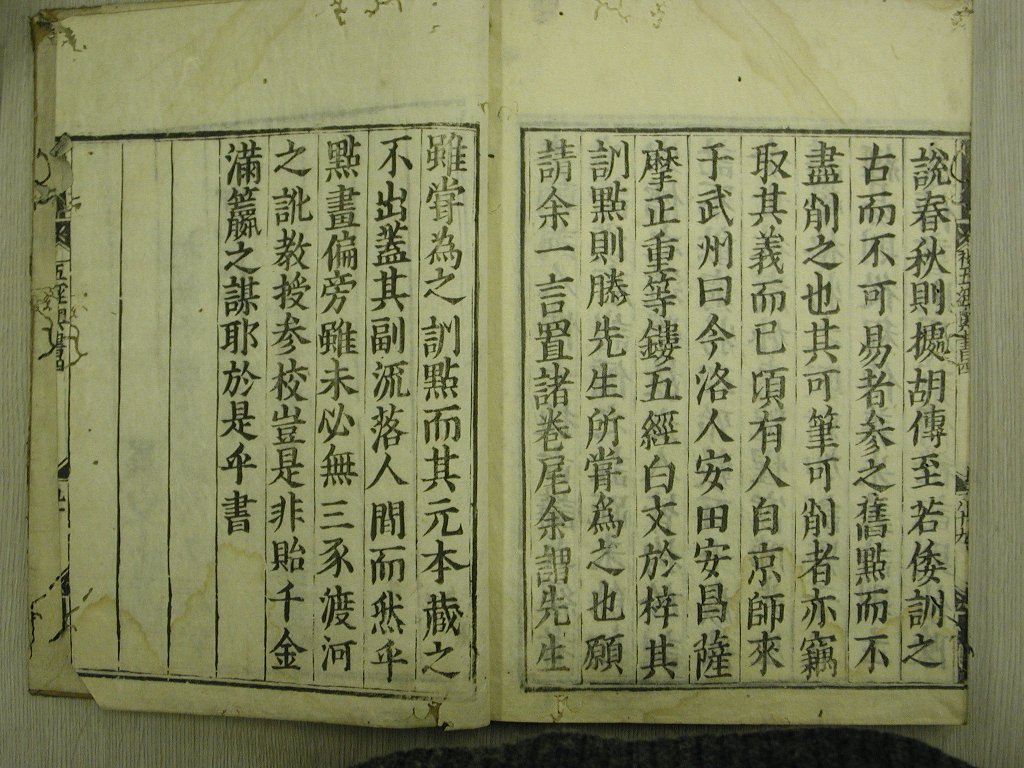 說春秋則據胡傳至若倭訓之
古而不可易者參之舊點而不
盡削之也其可筆可削者亦竊
取其義而已頃有人自京師來
于武州曰今洛人安田安昌薩
摩正重等鏤五經白文於梓其
訓點則勝先生所嘗為之也願
請余一言置諸卷尾余謂先生
雖嘗為之訓點而其元本藏之
不出蓋其副流落人間而然乎
點畫偏旁雖未必無三豕渡河
之訛教授參校豈是非貽千金
滿籯之謀耶於是乎書